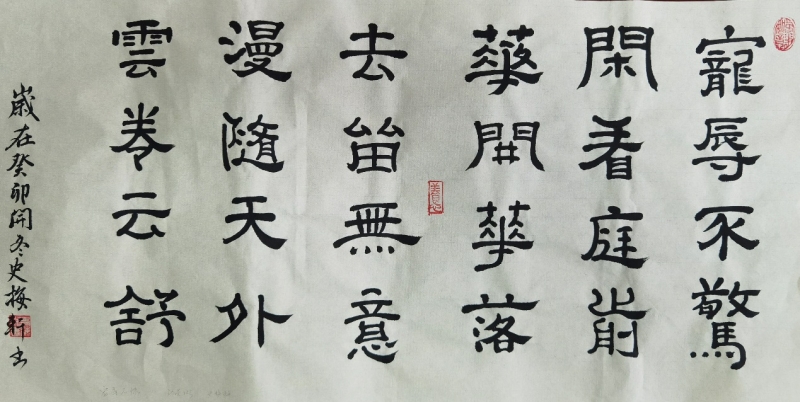 寵辱不驚
閑看庭前
華開華落
去留無意
漫隨天外
雲卷云舒
歲在癸卯開冬史梅軒書